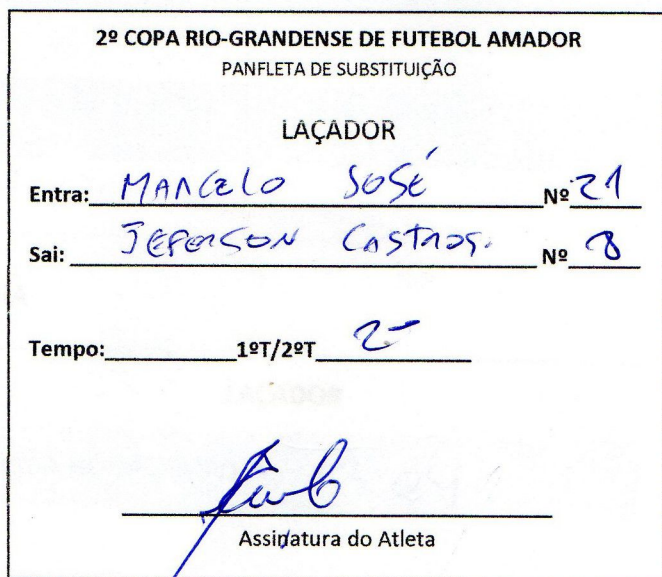 2º COPA RIO-GRANDENSE DE FUTEBOL AMADOR
PANFLETA DE SUBSTITUIÇÃO
LAÇADOR
Entra: MARCELO JOSÉ Nº 21
Sai: JEFERSON CASTROS. Nº 8
Tempo: 1ºT/2ºT 2º
Assinatura do Atleta